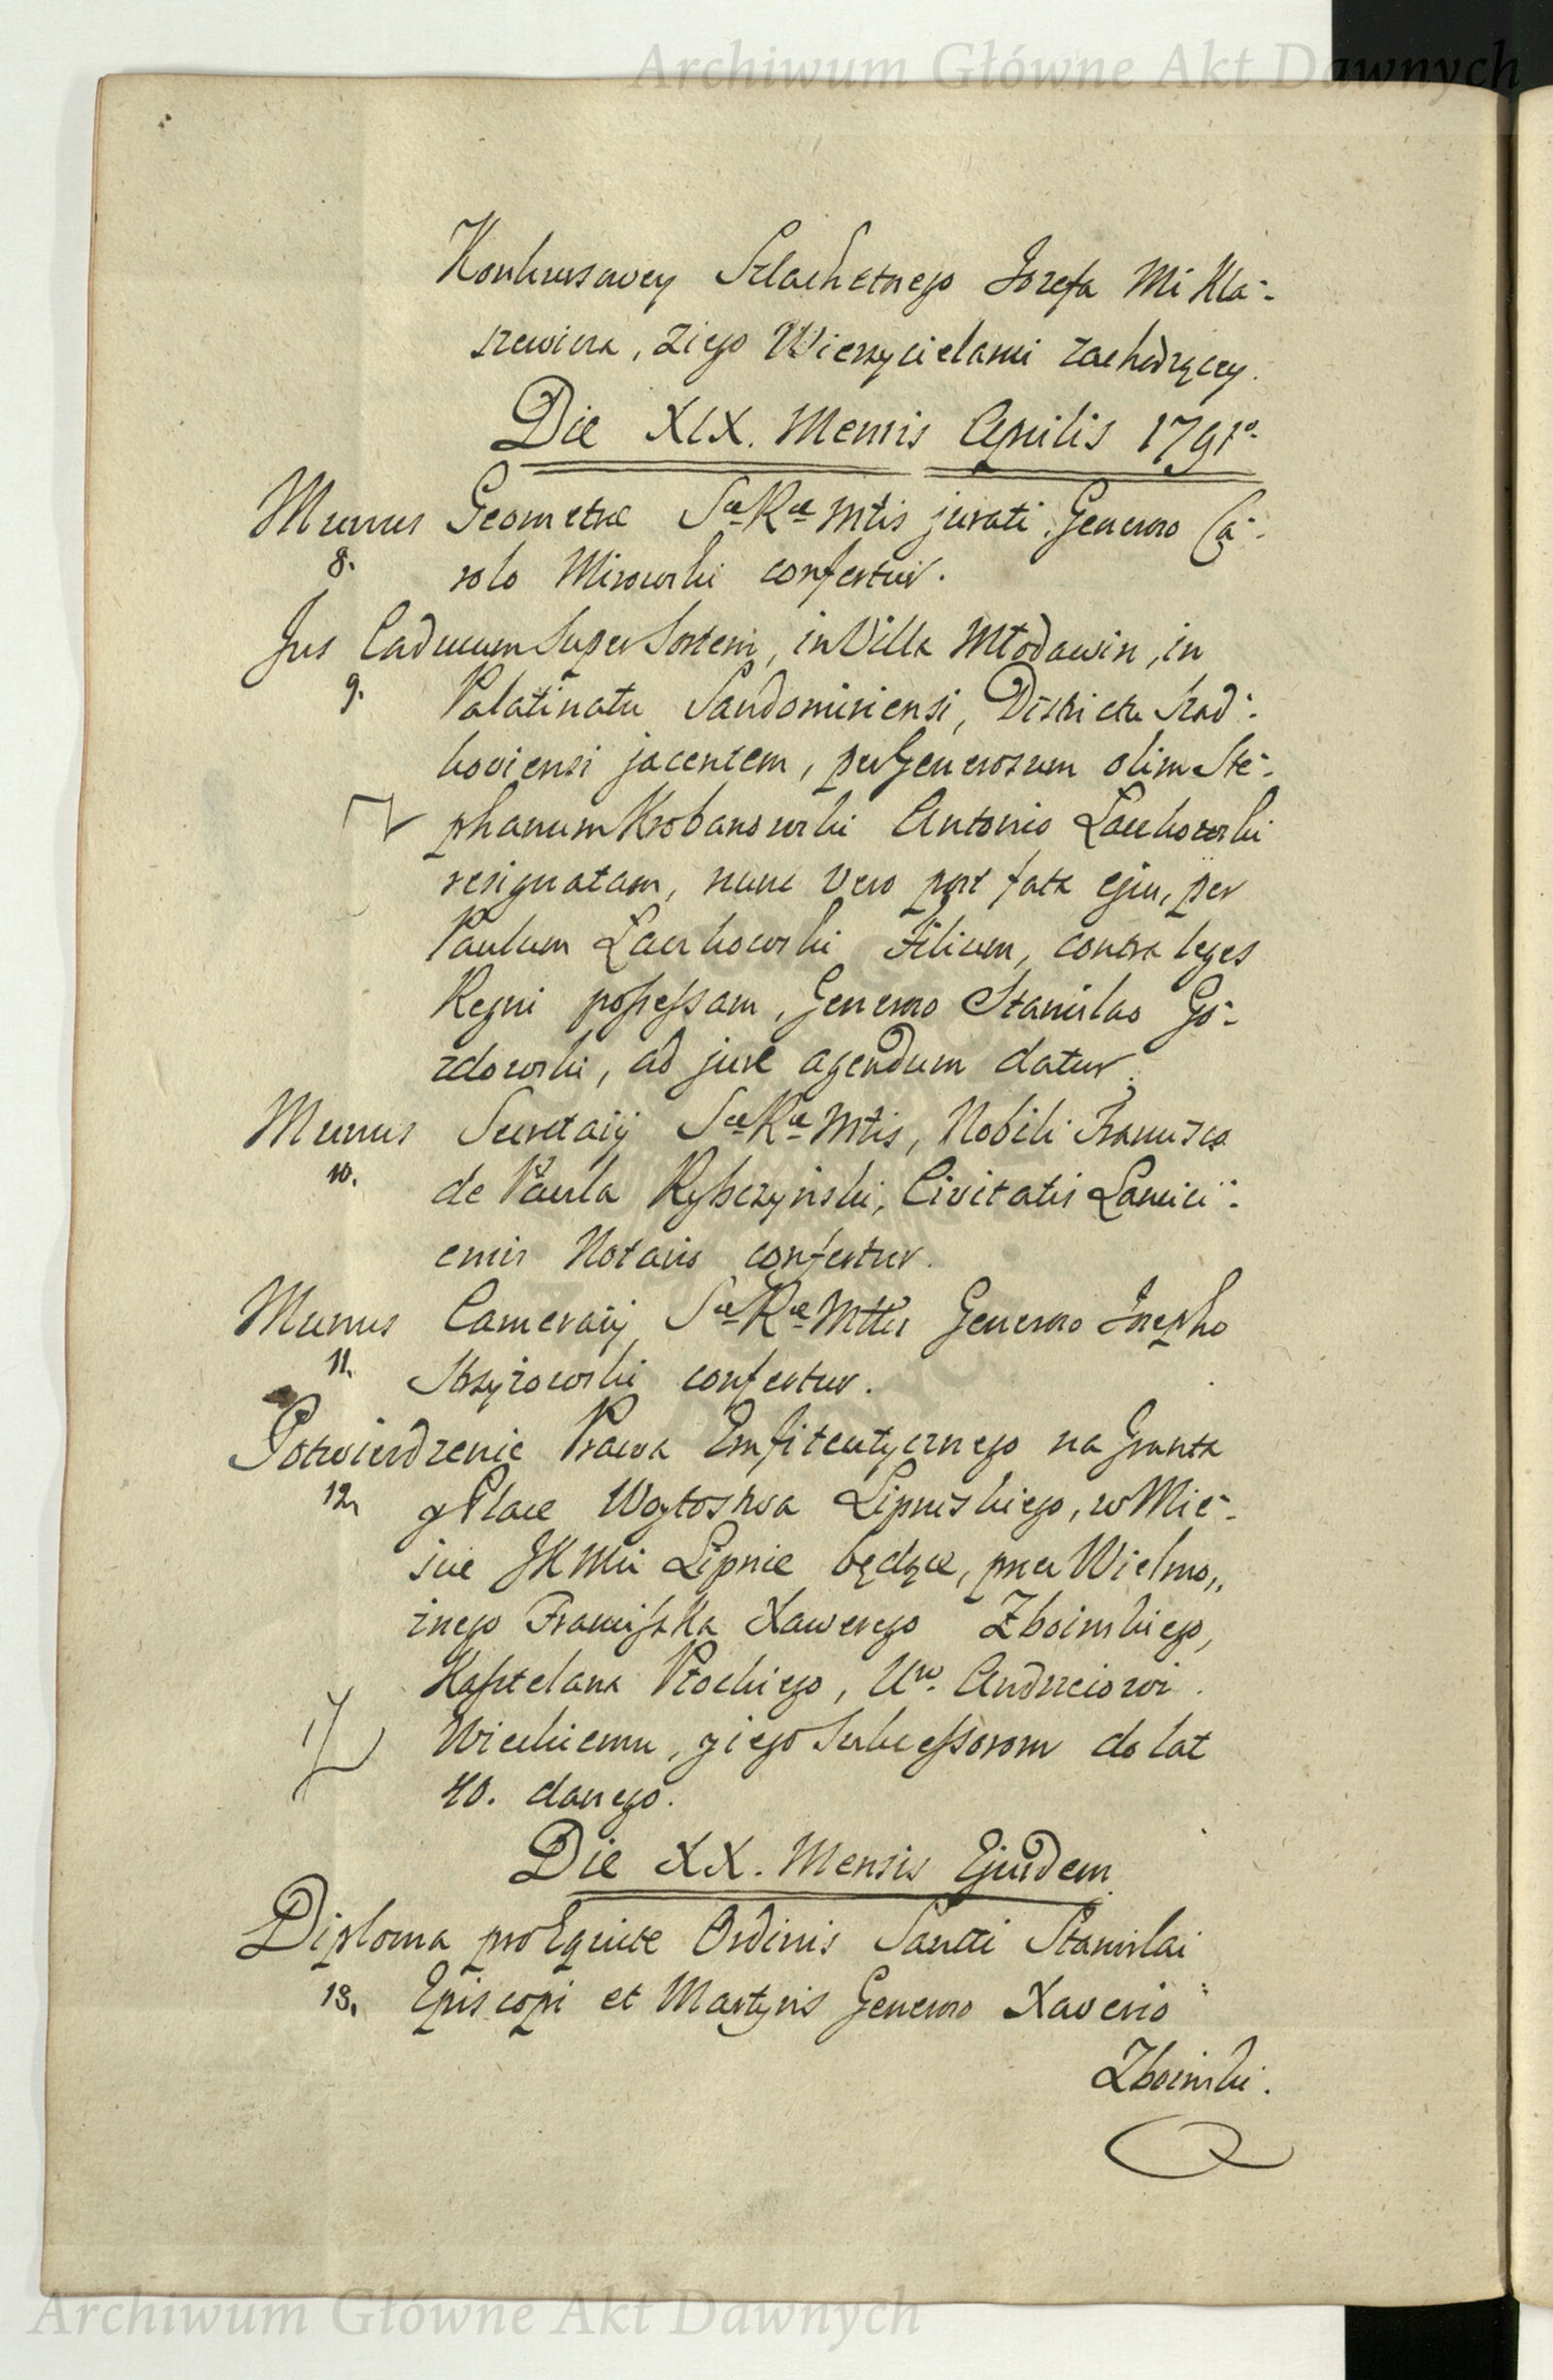 Archiwum Główne Akt Dawnych
Konkursowey Szlachetnego Jozefa Mikla-
szewicza, z iego Wierzycielami zachodzącey.
Die XIX. Mensis Aprilis 1791o.
Munus Geometrae Sae Rae Mtis jurati, Generoso Ca-
8. rolo Mirowski confertur.
Jus Caducum super sortem, in Villa Młodawin, in
9. Palatinatu Sandomiriensi, Districtu Rad-
koviensi jacentem, per Generosum olim Ste-
phanum Krobanowski Antonio Laskowski
resignatam, nunc vero post fata ejus, per
Paulum Laskowski Filium, contra leges
Regni possessam, Generoso Stanislao Go-
zdowski, ad jure agendum datur.
Munus Secretarij Sae Rae Mtis, Nobili Francisco
10. de Paula Rybczyński, Civitatis Lanici-
ensis Notario confertur.
Munus Camerarij Sae Rae Mttis Generoso Josepho
11. Strzyżowski confertur.
Potwierdzenie Prawa Emfiteutycznego na Grunta
12. y Place Woytostwa Lipnskiego, w Mie-
scie JKMci Lipnie będące, przez Wielmo„
żnego Franciszka Xawerego Zboinskiego,
Kasztelana Płockiego, Uro. Andrzeiowi
Wieckiemu, y iego Sukcessorom do lat
40. danego.
Die XX. Mensis Ejusdem
Diploma pro Equite Ordinis Sancti Stanislai
13. Episcopi et Martyris Generoso Xaverio
Zboinski.
Archiwum Główne Akt Dawnych